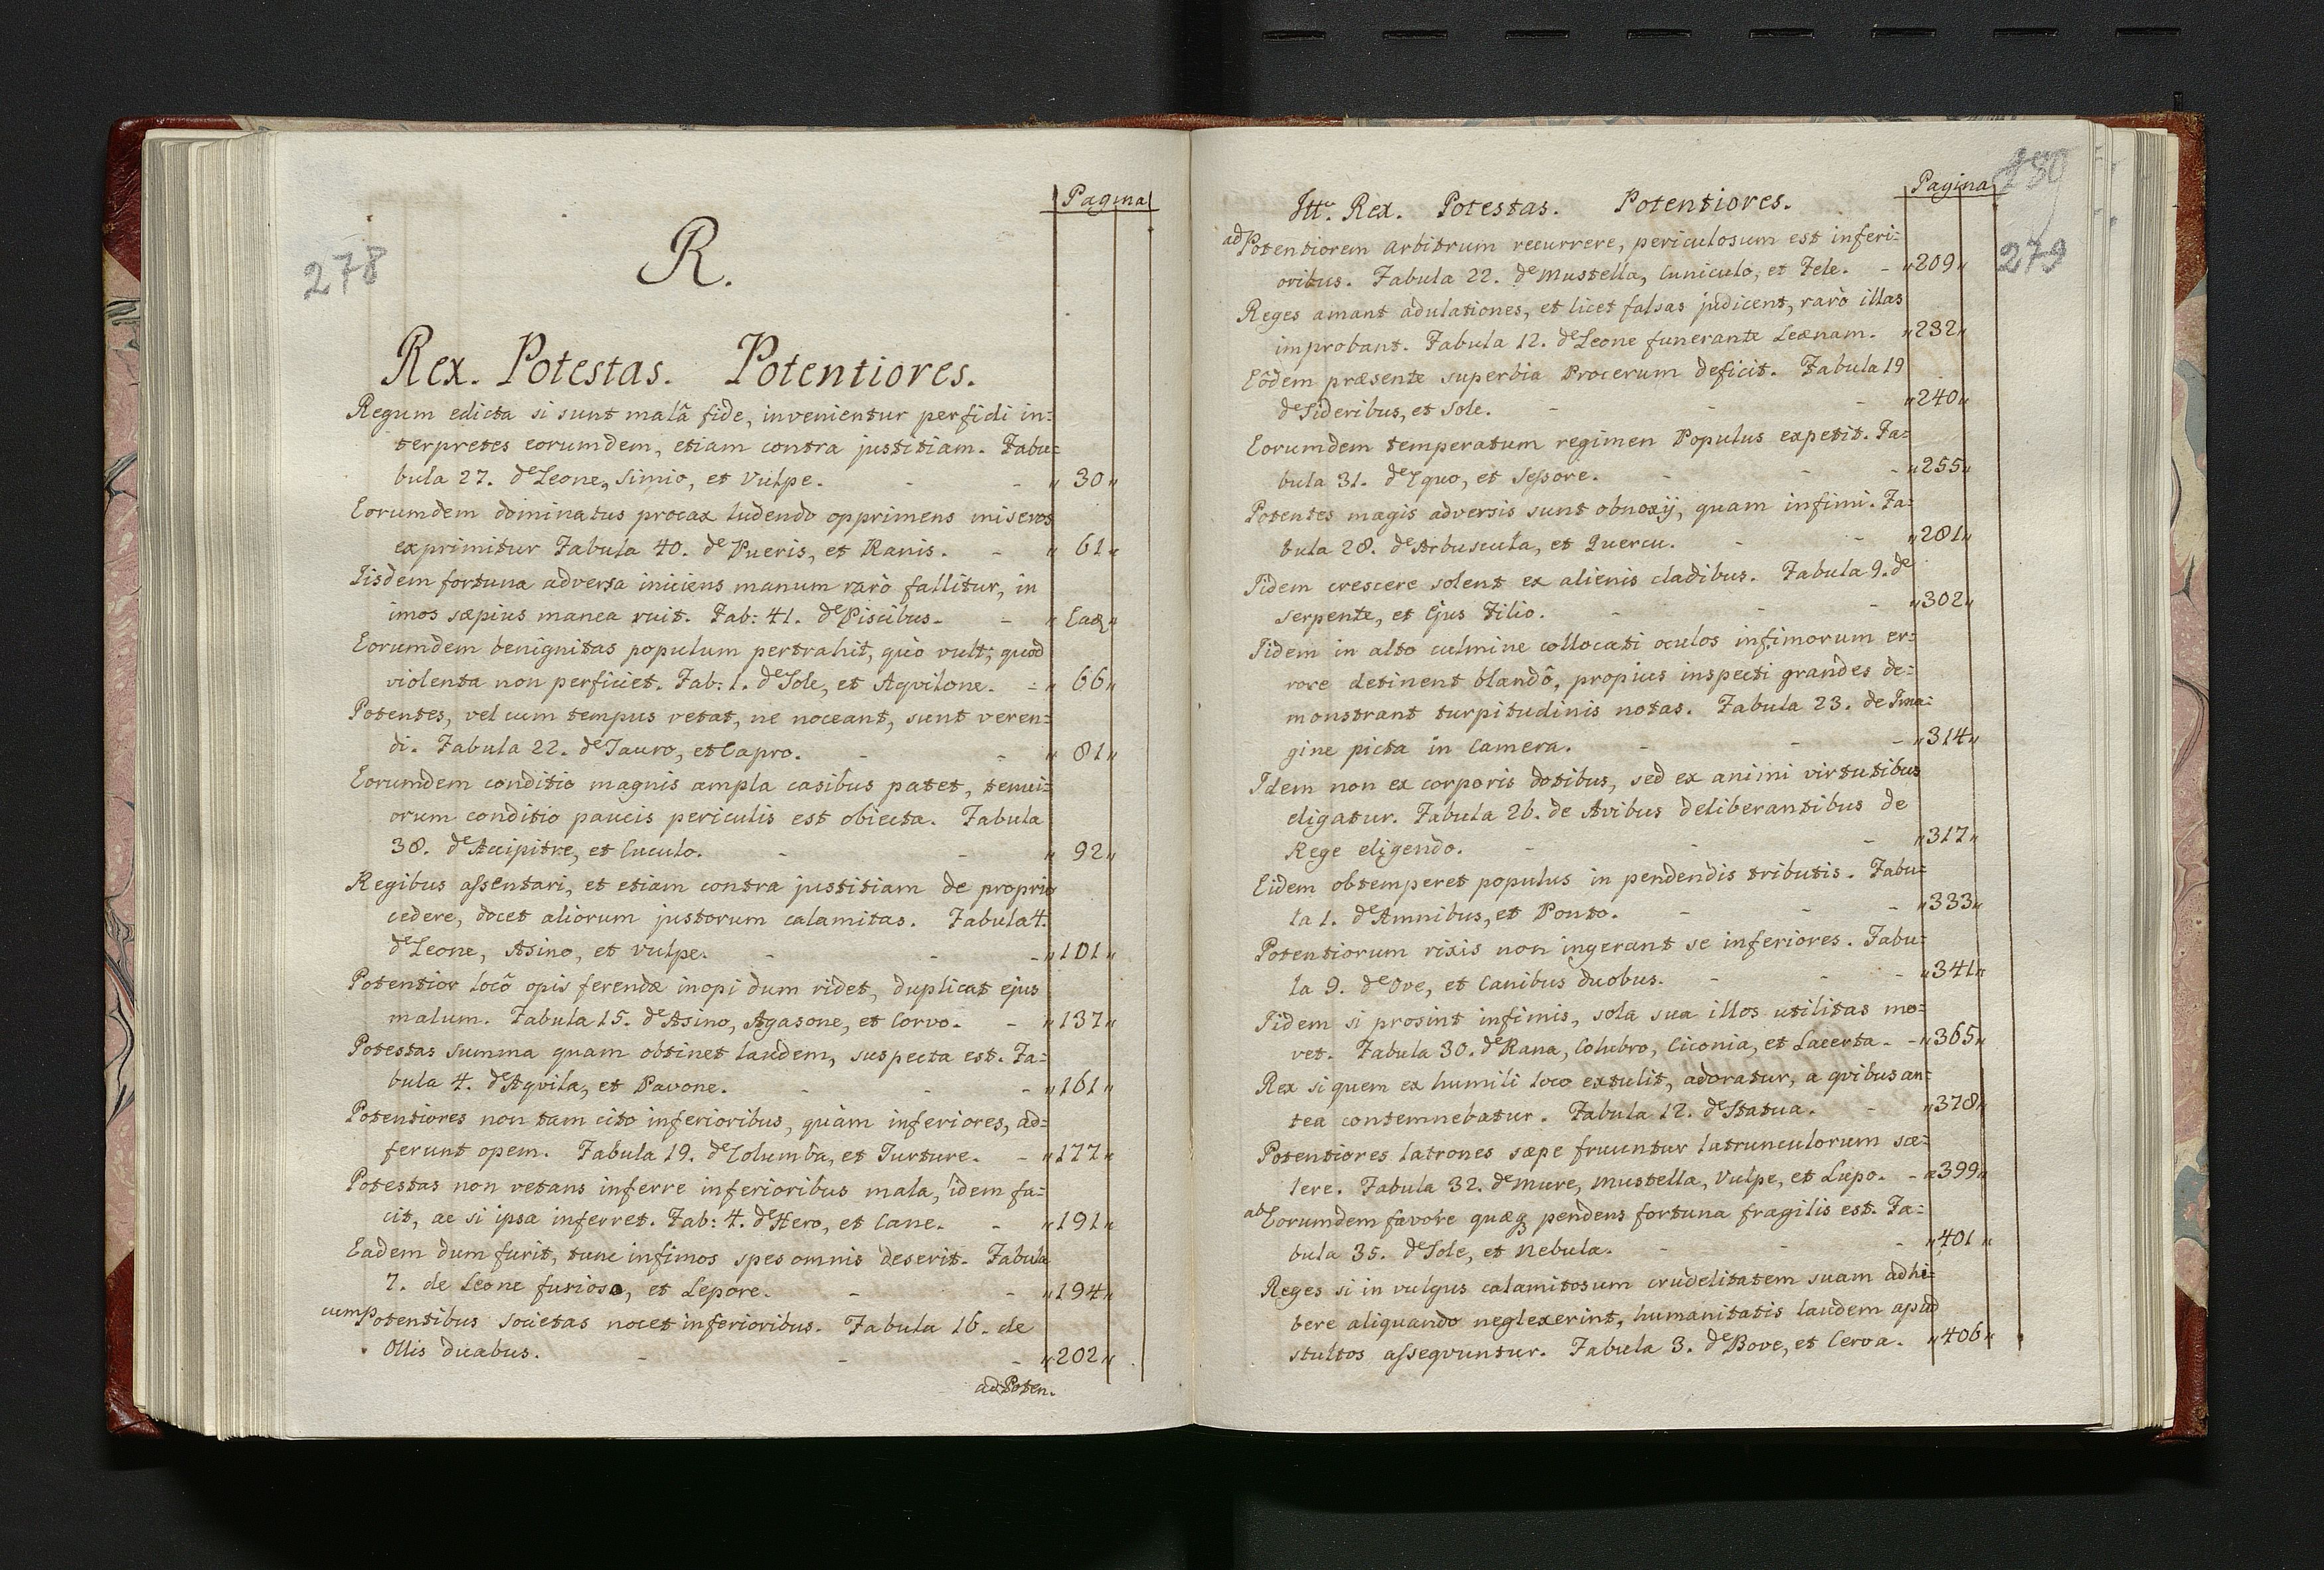 Pagina
278
R.
Rex. Potestas. Potentiores.
Regum edicta si sunt malâ fide, invenientur perfidi in=
terpretes eorumdem, etiam contra justitiam. Fabu=
bula 27. de Leone, Simio, et Vulpe. - - „ 30 „
Eorumdem dominatus procax ludendo opprimens miseros
exprimitur Fabula 40. de Pueris, et Ranis. - „ 61 „
Iisdem fortuna adversa iniciens manum rarò fallitur, in
imos sæpius manca ruit. Fab: 41. de Piscibus. - „ Ead „
Eorumdem benignitas populum pertrahit, quò vult; quod
violenta non perficiet. Fab: 1. de Sole, et Aqvilone. = „ 66 „
Potentes, vel cum tempus vetat, ne noceant, sunt veren=
di. Fabula 22. de Tauro, et Capro. - - „ 81 „
Eorumdem conditio magnis ampla casibus patet, tenui=
orum conditio paucis periculis est obiecta. Fabula
38. de Accipitre, et Cuculo. - - „ 92 „
Regibus assentari, et etiam contra justitiam de proprio
cedere, docet aliorum justorum calamitas. Fabula 4.
de Leone, Asino, et Vulpe. - - - „ 101 „
Potentior locô opis ferendæ inopi dum ridet, duplicat ejus
malum. Fabula 15. de Asino, Agasone, et Corvo. - „ 137 „
Potestas summa quam obtinet laudem, suspecta est. Fa=
bula 4. de Aqvila, et Pavone. - - - „ 161 „
Potentiores non tam cito inferioribus, quàm inferiores, ad=
ferunt opem. Fabula 19. de Columba, et Turture. - „ 177 „
Potestas non vetans inferre inferioribus mala, idem fa=
cit, ac si ipsa inferret. Fab: 4. de Hero, et Cane. - „ 191 „
Eadem dum furit, tunc infimos spes omnis deserit. Fabula
7. de Leone furioso, et Lepore. - - „ 194 „
cum Potentibus Societas nocet inferioribus. Fabula 16. de
Ollis duabus. - - - „ 202 „
ad Poten.
Pagina
279
Itt. Rex. Potestas. Potentiores.
ad Potentiorem arbitrum recurrere, periculosum est inferi=
oribus. Fabula 22. de Mustella, Cuniculo, et Fele. - „ 209 „
Reges amant adulationes, et licet falsas judicent, rarò illas
improbant. Fabula 12. de Leone funerante Leænam. „ 232 „
Eôdem præsente superbia Procerum deficit. Fabula 19
de Sideribus, et Sole. - - - „ 240 „
Eorumdem temperatum regimen Populus expetit. Fa=
bula 31. de Equo, et Sessore. - - - „ 255 „
Potentes magis adversis sunt obnoxij, quam infimi. Fa=
bula 28. de Arbuscula, et Quercu. - - „ 281 „
Iidem crescere solent ex alienis cladibus. Fabula 9. de
serpente, et Ejus Filio. - - - „ 302 „
Iidem in alto culmine collocati oculos infimorum er=
rore detinent blandô, propius inspecti grandes de=
monstrant turpitudinis notas. Fabula 23. de Ima=
gine picta in Camera. - - - „ 314 „
Idem non ex corporis dotibus, sed ex animi virtutibus
eligatur. Fabula 26. de Avibus deliberantibus de
Rege eligendo. - - - „ 317 „
Eidem obtemperet populus in pendendis tributis. Fabu=
la 1. de Amnibus, et Ponto. - - - „ 333 „
Potentiorum rixis non ingerant se inferiores. Fabu=
la 9. de Ove, et Canibus duobus. - - - „ 341 „
Iidem si prosint infimis, sola sua illos utilitas mo=
vet. Fabula 30. de Rana, Colubro, Ciconia, et Lacerta. - „ 365 „
Rex si quem ex humili loco extulit, adoratur, a qvibus an=
tea contemnebatur. Fabula 12. de Statua. - „ 378 „
Potentiores latrones sæpe fruuntur latrunculorum sce=
lere. Fabula 32. de Mure, Mustella, Vulpe, et Lupo. - „ 399 „
ab Eorumdem favore quæq pendens fortuna fragilis est. Fa=
bula 35. de Sole, et Nebula. - - - „ 401 „
Reges si in vulgus calamitosum crudelitatem suam adhi=
bere aliquando neglexerint, humanitatis laudem apud
stultos asseqvuntur. Fabula 3. de Bove, et Cerva. „ 406 „